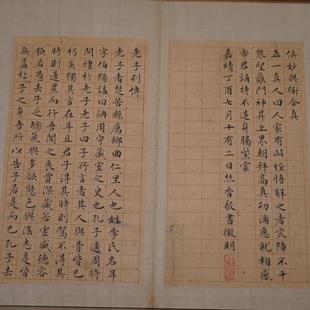 俱妙與衜合真
正一真人曰人家有此經悟解之者灾障不干
衆聖護門神昇上界朝拜高真功滿德就相感
帝君誦持不退身騰紫雲
嘉靖丁酉七月十有二日焚香敬書徵明
老子列傳
老子者楚苦縣厲鄉曲仁里人也姓李氏名耳
字伯陽諡曰聃周守藏室之史也孔子適周將
問禮於老子老子曰子所言者其人與骨皆已
朽矣獨其言在耳且君子得其時則駕不得其
時則蓬累而行吾聞之良賈深藏若虛盛德容
貌若愚去子之驕氣與多欲態色與淫志是皆
無益於子之身吾所以告子若是而已孔子去